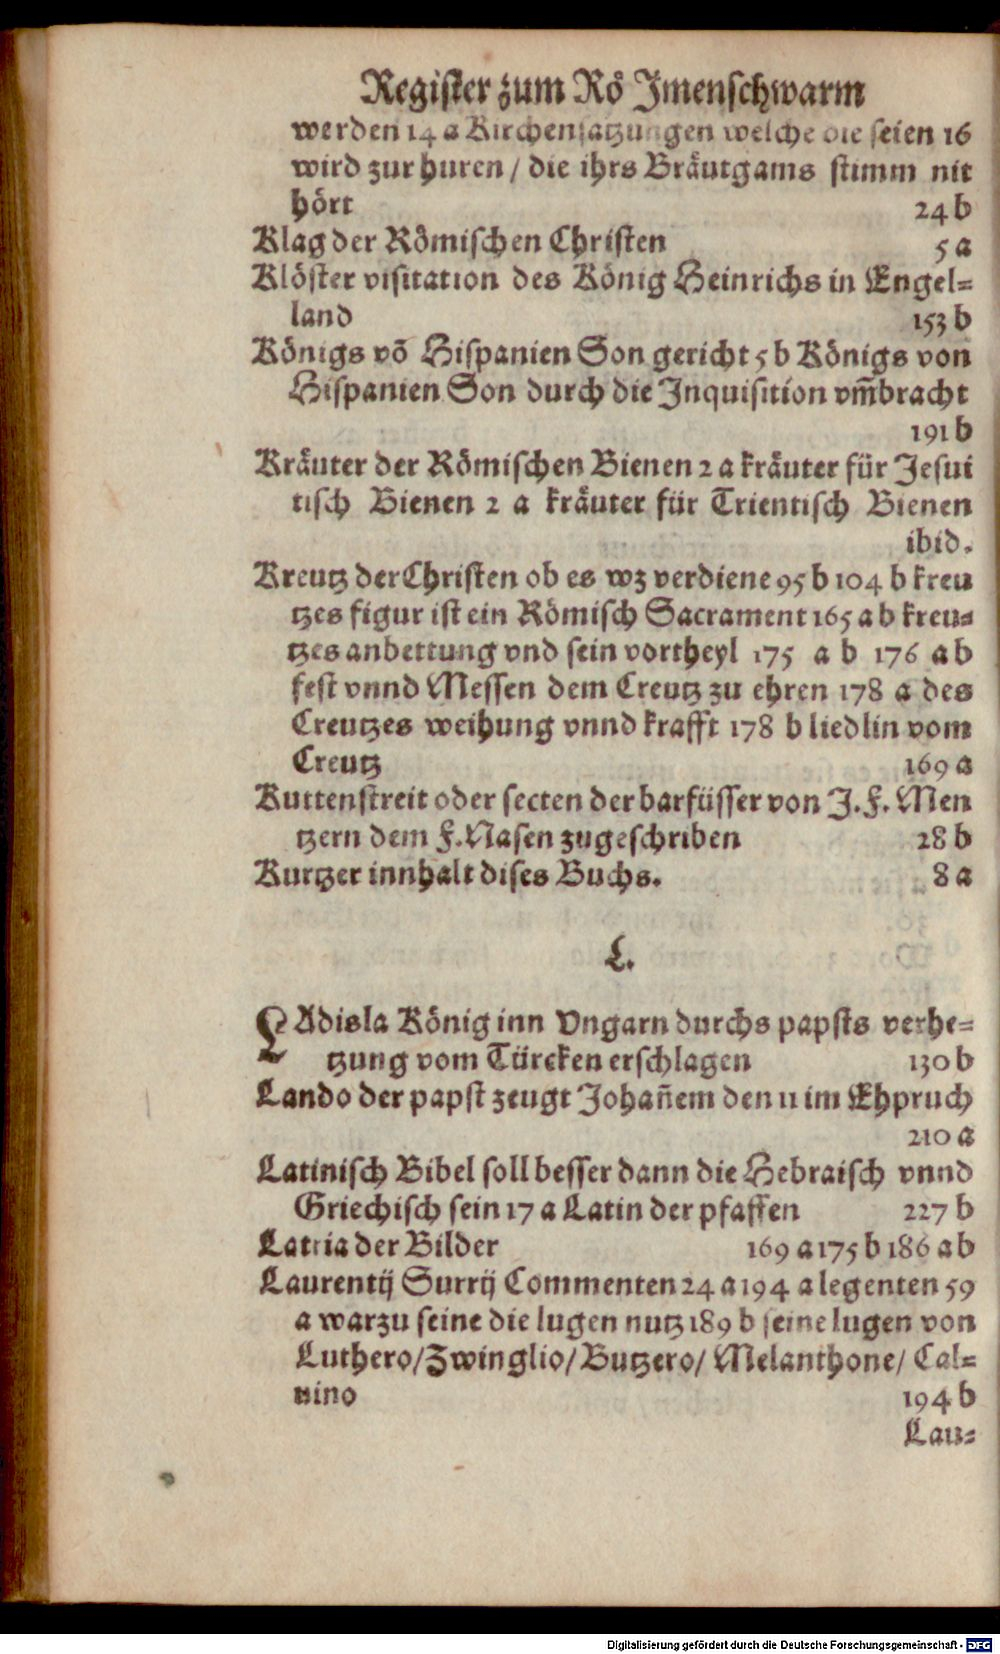 Register zum Rö Jmenschwarm
werden 14 a Kirchensatzungen welche die seien 16
wird zur huren / die ihrs Bräutgams stimm nit
hört 24 b
Klag der Römischen Christen 5 a
Klöster visitation des König Heinrichs in Engel=
land 153 b
Königs võ Hispanien Son gericht 5 b Königs von
Hispanien Son durch die Jnquisition vm̃bracht
191 b
Kräuter der Römischen Bienen 2 a kräuter für Jesui
tisch Bienen 2 a kräuter für Trientisch Bienen
ibid.
Kreutz der Christen ob es wz verdiene 95 b 104 b kreu
tzes figur ist ein Römisch Sacrament 165 a b kreu=
tzes anbettung vnd sein vortheyl 175 a b 176 a b
fest vnnd Messen dem Creutz zu ehren 178 a des
Creutzes weihung vnnd krafft 178 b liedlin vom
Creutz 169 a
Kuttenstreit oder secten der barfüsser von J. F. Men
tzern dem F. Nasen zugeschriben 28 b
Kurtzer innhalt dises Buchs. 8 a
L.
LAdisla König inn Vngarn durchs papsts verhe=
tzung vom Türcken erschlagen 130 b
Lando der papst zeugt Johañem den 11 im Ehpruch
210 a
Latinisch Bibel soll besser dann die Hebraisch vnnd
Griechisch sein 17 a Latin der pfaffen 227 b
Latria der Bilder 169 a 175 b 186 a b
Laurentij Surrij Commenten 24 a 194 a legenten 59
a warzu seine die lugen nutz 189 b seine lugen von
Luthero/ Zwinglio/ Butzero/ Melanthone/ Cal=
uino 194 b
Lau=
Digitalisierung gefördert durch die Deutsche Forschungsgemeinschaft - DFG